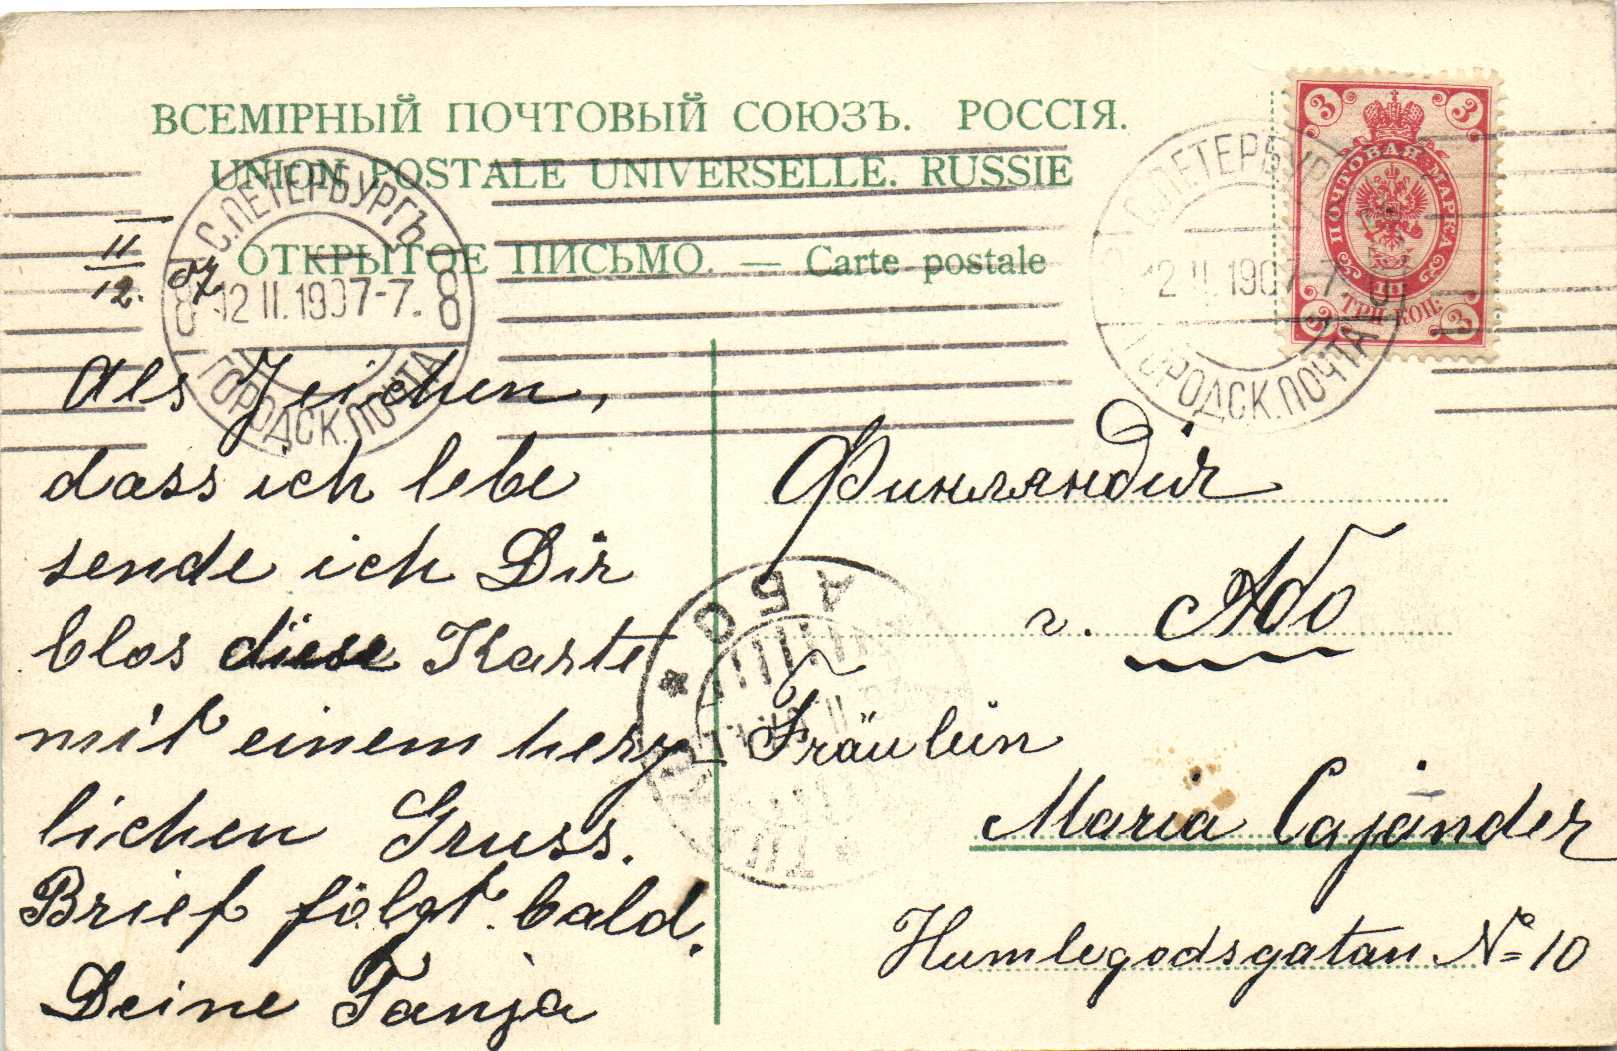 ВСЕМІРНЫЙ ПОЧТОВЫЙ СОЮЗЪ. РОССІЯ.
UNION POSTALE UNIVERSELLE. RUSSIE
ОТКРЫТОЕ ПИСЬМО. — Carte postale
С.ПЕТЕРБУРГЪ
8 12 II.1907-7. 8
ГОРОДСК.ПОЧТА
С.ПЕТЕРБУР
12 II.1907-7
ГОРОДСК.ПОЧТА
3 3
ПОЧТОВАЯ МАРКА
ТРИ КОП.
3 3
11/12. 07
Als Zeichen,
dass ich lebe
sende ich Dir
blos diese Karte
mit einem herz-
lichen Gruss.
Brief folgt bald.
Deine Tanja
Финляндія
г. Або
Fräulein
Maria Cajander
Humlegodsgatan № 10
АБО